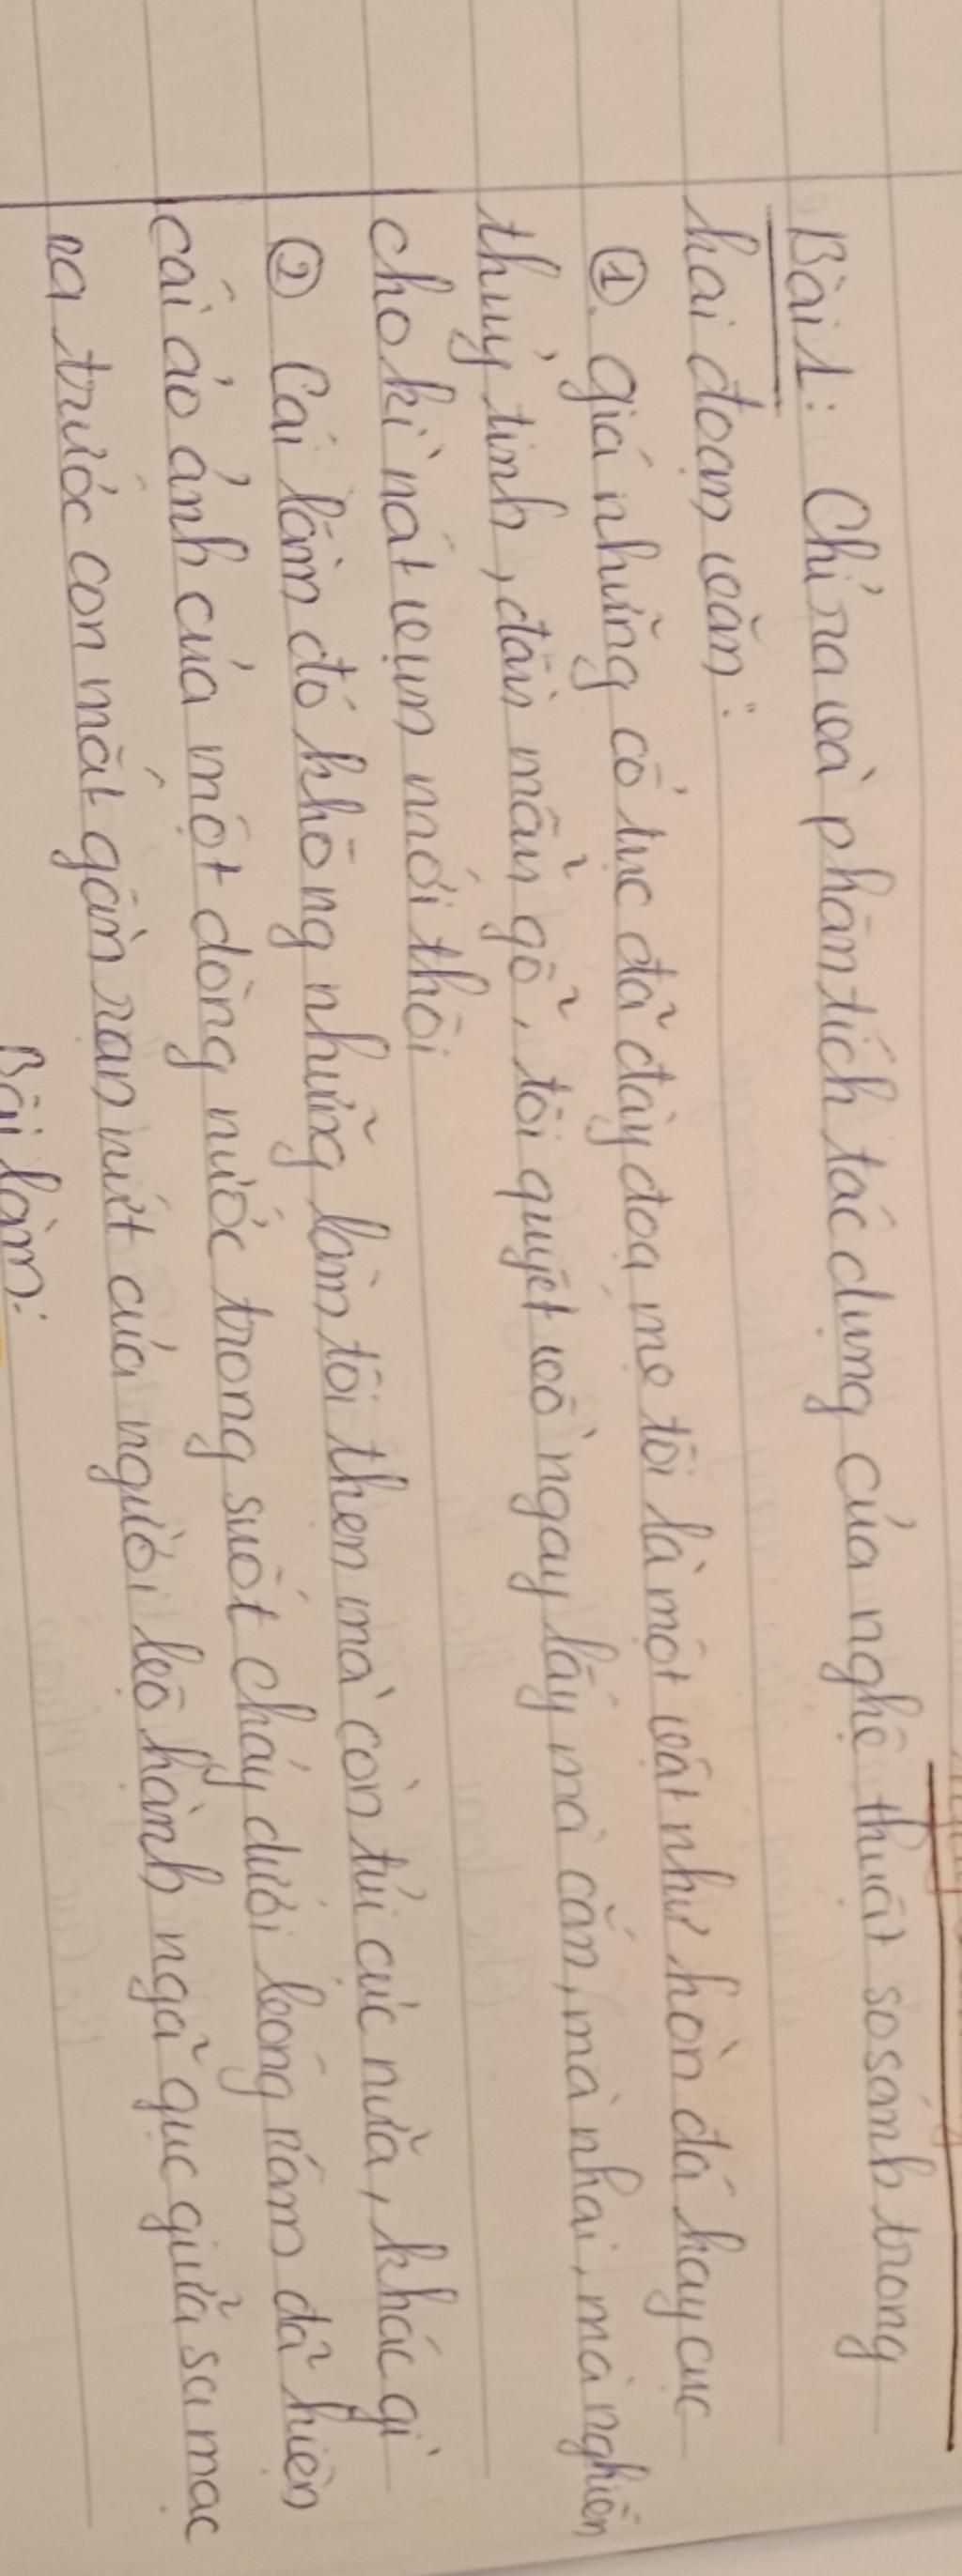 Bài 1: Chỉ ra và phân tích tác dụng của nghệ thuật so sánh trong
hai đoạn văn:
①. giá những cổ tục đã đày đoạ mẹ tôi là một vật như hòn đá hay cục
thuỷ tinh, đầu mẩu gỗ, tôi quyết vồ ngay lấy mà cắn, mà nhai, mà nghiến
cho kì nát vụn mới thôi
② Cái lầm đó không những làm tôi thẹn mà còn tủi cực nữa, khác gì
cái ảo ảnh của một dòng nước trong suốt chảy dưới bóng râm đã hiện
ra trước con mắt gần rạn nứt của người bộ hành ngã gục giữa sa mạc
Bài làm: